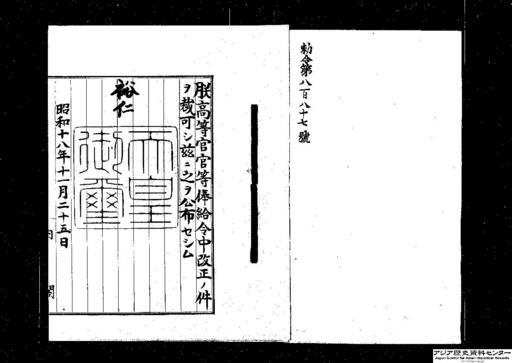 勅令第八百八十七號
朕高等官官等俸給令中改正ノ件
ヲ裁可シ茲ニ之ヲ公布セシム
裕仁
天皇
御璽
昭和十八年十一月二十五日
内閣
アジア歴史資料センター
Japan Center for Asian Historical Records